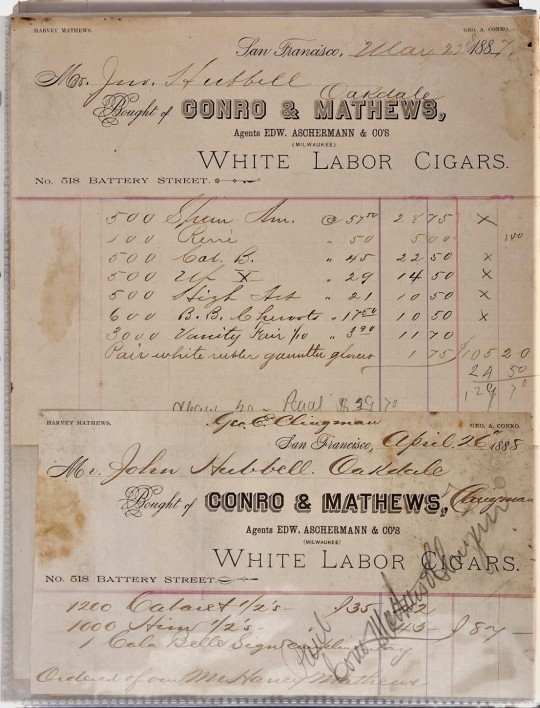 HARVEY MATHEWS. GEO. A. CONRO.
San Francisco, Mar 22d 1887.
Mr. Jno. Hubbell
Oakdale
Bought of CONRO & MATHEWS,
Agents EDW. ASCHERMANN & CO'S
(MILWAUKEE)
WHITE LABOR CIGARS.
No. 518 BATTERY STREET.
500 Am. @ 57 50 28 75 x
100 " 50 5 00 100
500 Cal. B. " 45 22 50 x
500 Up X " 29 14 50 x
500 High Art " 21 10 50 x
600 B. B. Cheroots " 17 50 10 50 x
3000 Vanity Fair 1/10 " 3 90 11 70
Pair white gloves 1 75 105 20
24 50
129 70
HARVEY MATHEWS. Geo. C. Clingman GEO. A. CONRO.
San Francisco, April 26th 1888
Mr. John Hubbell. Oakdale
Bought of CONRO & MATHEWS, Clingman
Agents EDW. ASCHERMANN & CO'S
(MILWAUKEE)
WHITE LABOR CIGARS.
No. 518 BATTERY STREET.
1200 Cabaret 1/2's - 35
1000 1/2's -
1 Sign
Paid
Ordered of our Mr Harvey Mathews